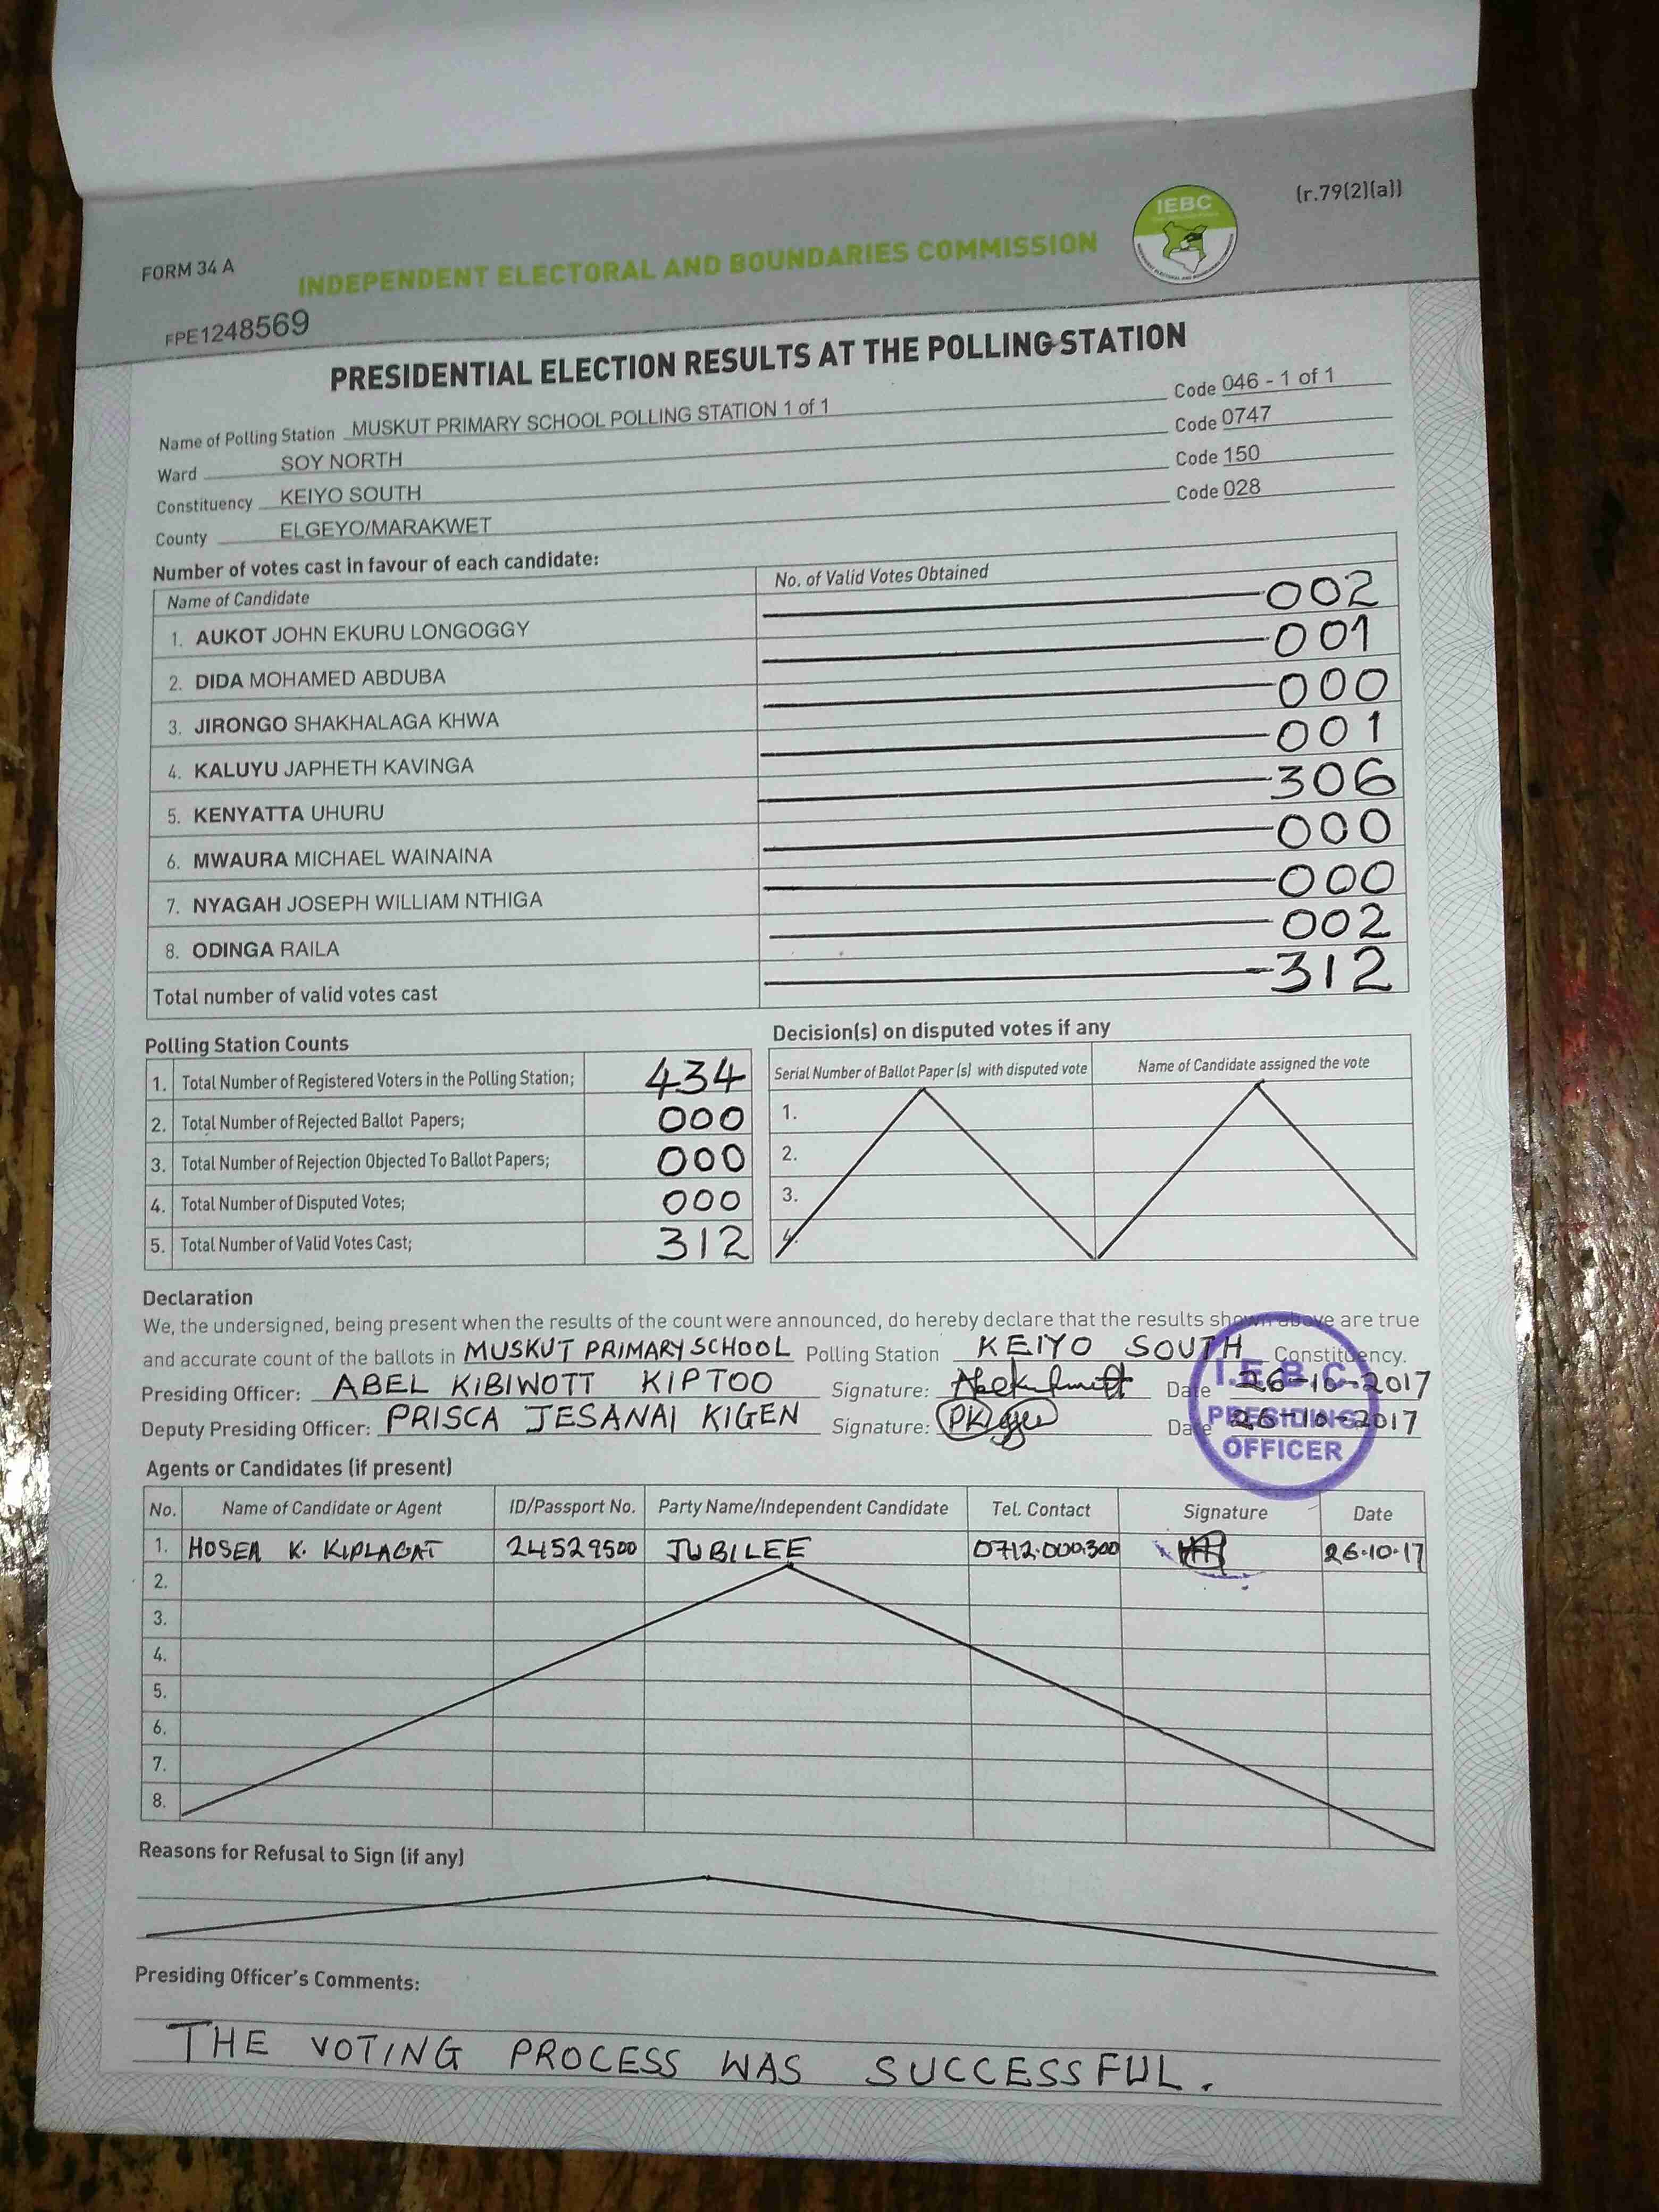 (r.79(2)(a))
IEBC
FORM 34 A
INDEPENDENT ELECTORAL AND BOUNDARIES COMMISSION
FPE1248569
PRESIDENTIAL ELECTION RESULTS AT THE POLLING STATION
Name of Polling Station MUSKUT PRIMARY SCHOOL POLLING STATION 1 of 1 Code 046 - 1 of 1
Ward SOY NORTH Code 0747
Constituency KEIYO SOUTH Code 150
County ELGEYO/MARAKWET Code 028
Number of votes cast in favour of each candidate:
Name of Candidate No. of Valid Votes Obtained
1. AUKOT JOHN EKURU LONGOGGY 002
2. DIDA MOHAMED ABDUBA 001
3. JIRONGO SHAKHALAGA KHWA 000
4. KALUYU JAPHETH KAVINGA 001
5. KENYATTA UHURU 306
6. MWAURA MICHAEL WAINAINA 000
7. NYAGAH JOSEPH WILLIAM NTHIGA 000
8. ODINGA RAILA 002
Total number of valid votes cast 312
Polling Station Counts
1. Total Number of Registered Voters in the Polling Station; 434
2. Total Number of Rejected Ballot Papers; 000
3. Total Number of Rejection Objected To Ballot Papers; 000
4. Total Number of Disputed Votes; 000
5. Total Number of Valid Votes Cast; 312
Decision(s) on disputed votes if any
Serial Number of Ballot Paper (s) with disputed vote Name of Candidate assigned the vote
1.
2.
3.
4.
Declaration
We, the undersigned, being present when the results of the count were announced, do hereby declare that the results shown above are true
and accurate count of the ballots in MUSKUT PRIMARY SCHOOL Polling Station KEIYO SOUTH Constituency.
Presiding Officer: ABEL KIBIWOTT KIPTOO Signature: Date 26-10-2017
Deputy Presiding Officer: PRISCA JESANAI KIGEN Signature: Date 26-10-2017
I.E.B.C
PRESIDING
OFFICER
Agents or Candidates (if present)
No. Name of Candidate or Agent ID/Passport No. Party Name/Independent Candidate Tel. Contact Signature Date
1. HOSEA K. KIPLAGAT 24529500 JUBILEE 0712.000.300 26.10.17
2.
3.
4.
5.
6.
7.
8.
Reasons for Refusal to Sign (if any)
Presiding Officer's Comments:
THE VOTING PROCESS WAS SUCCESSFUL.